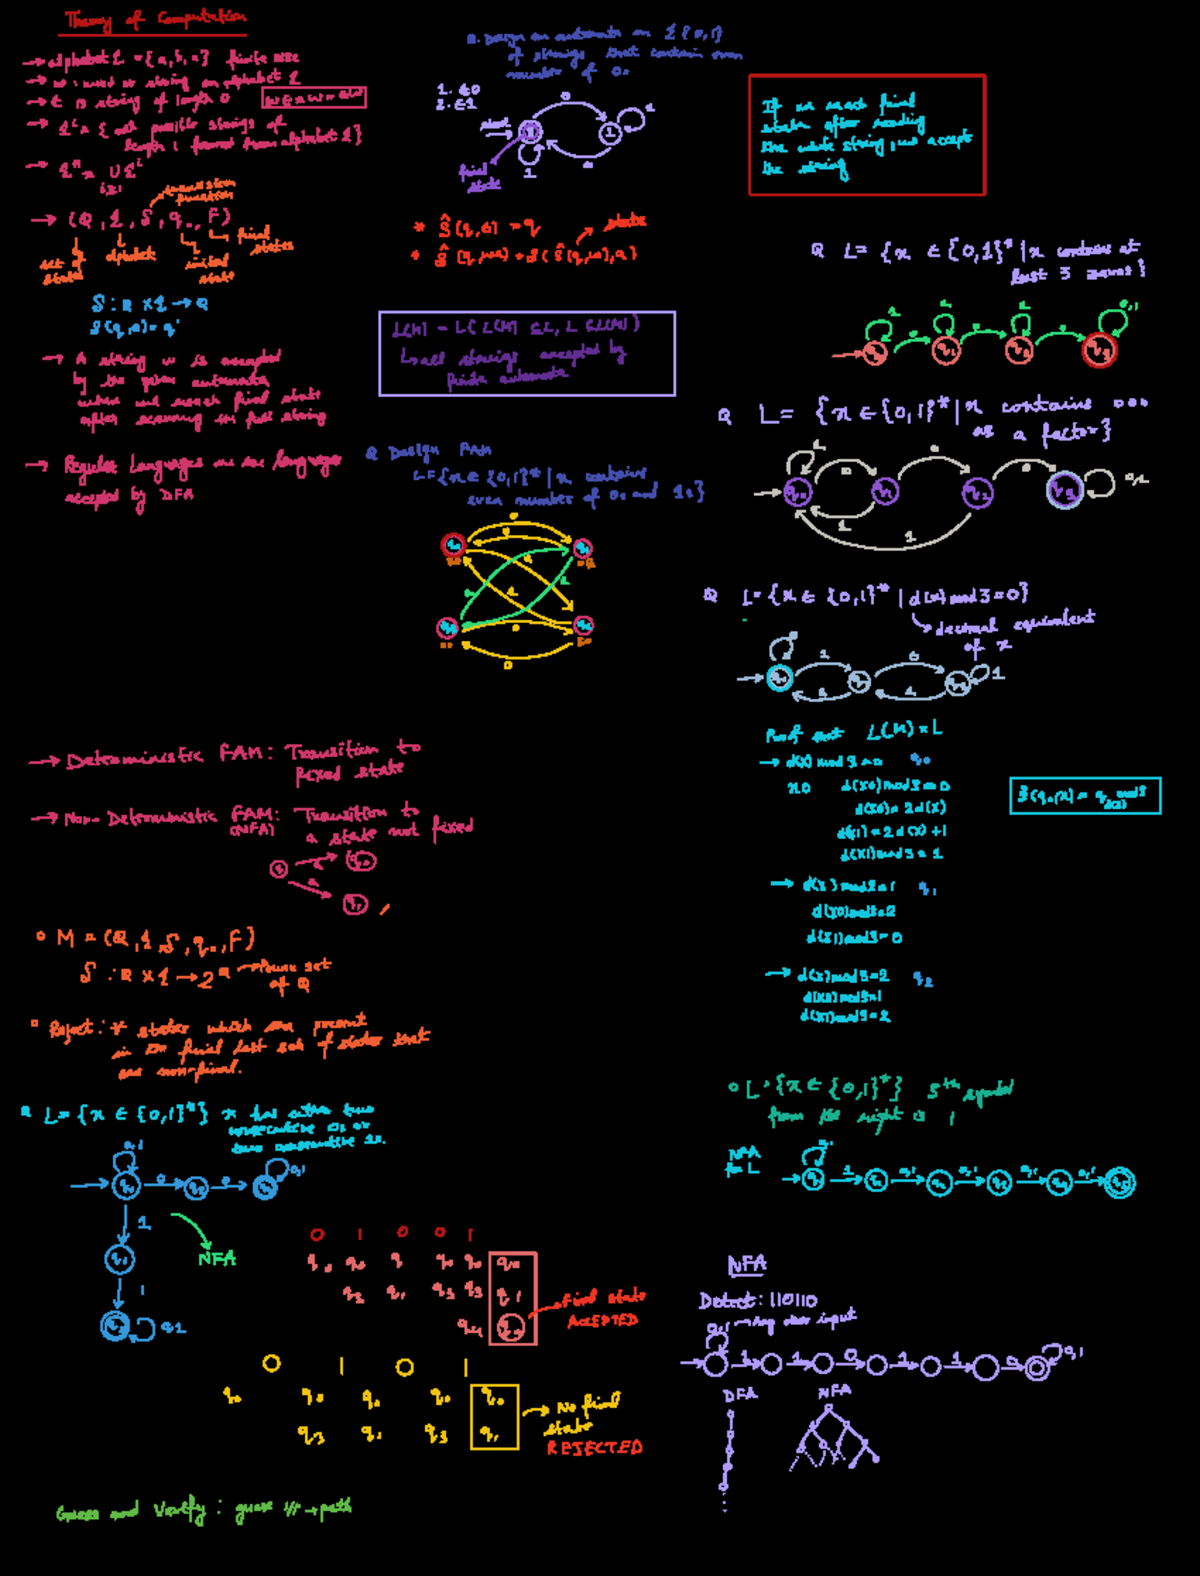 Theory of Computation
→ alphabet Σ = {a, b, c} finite size
→ w : word or string on alphabet Σ
→ ε is string of length 0
→ Σ^i = { all possible strings of
length i formed from alphabet Σ}
→ Σ* = ∪ Σ^i
i≥1
transition
function
→ (Q, Σ, δ, q₀, F)
set of
states
alphabet
initial
state
final
states
δ : Q × Σ → Q
δ(q, a) = q'
→ A string w is accepted
by the given automata
when we reach final state
after scanning the full string
→ Regular Languages are languages
accepted by DFA
Q. Design an automata on Σ {0,1}
of strings that contain even
number of 0.
1. ε0
2. ε1
start
0
1
1
1
0
final
state
* δ̂(q, ε) = q
* δ̂(q, wa) = δ(δ̂(q, w), a)
state
L(M) = L ( L(M) ⊆ L, L ⊆ L(M) )
↳ all strings accepted by
finite automata
Q Design FAM
L = {x ∈ {0,1}* | x contains
even number of 0s and 1s}
If we reach final
state after reading
the whole string, we accept
the string
Q L = {x ∈ {0,1}* | x contains at
least 3 zeroes}
Q L = {x ∈ {0,1}* | x contains 000
as a factor}
Q L = {x ∈ {0,1}* | d(x) mod 3 = 0}
↳ decimal equivalent
of x
Proof that L(M) = L
→ d(x) mod 3 = 0 q₀
x0 d(x0) mod 3 = 0
d(x0) = 2d(x)
d(x1) = 2d(x) + 1
d(x1) mod 3 = 1
δ̂(q₀, x) = q d(x) mod 3
→ d(x) mod 3 = 1 q₁
d(x0) mod 3 = 2
d(x1) mod 3 = 0
→ d(x) mod 3 = 2 q₂
d(x0) mod 3 = 1
d(x1) mod 3 = 2
→ Deterministic FAM : Transition to
fixed state
→ Non-Deterministic FAM : Transition to
(NFA) a state not fixed
M = (Q, Σ, δ, q₀, F)
δ : Q × Σ → 2^Q → Power set
of Q
Reject : * states which are present
in the final last set of states that
are non-final.
Q L = {x ∈ {0,1}*} x has either two
consecutive 0s or
two consecutive 1s.
NFA
0 1 0 0 1
Final state
ACCEPTED
0 1 0 1
No final
state
REJECTED
Guess and Verify : guess → path
L = {x ∈ {0,1}*} 5th symbol
from the right is 1
NFA
for L
NFA
Detect : 110110
0,1 → Any other input
1 1 0 1 1 0 0,1
DFA NFA